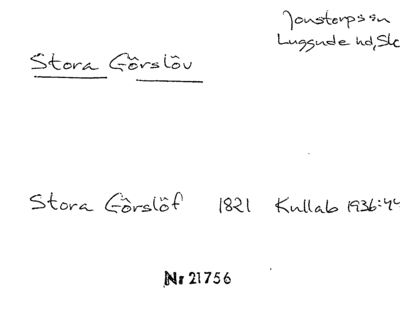 Jonstorps sn
Luggude hd, Sk
Stora Görslöv
Stora Görslöf 1821 Kullab 1936:44
Nr 21756